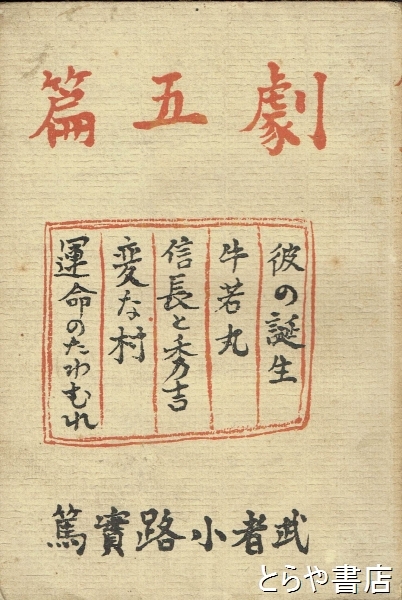 劇五篇
彼の誕生
牛若丸
信長と秀吉
変な村
運命のたわむれ
武者小路實篤
とらや書店